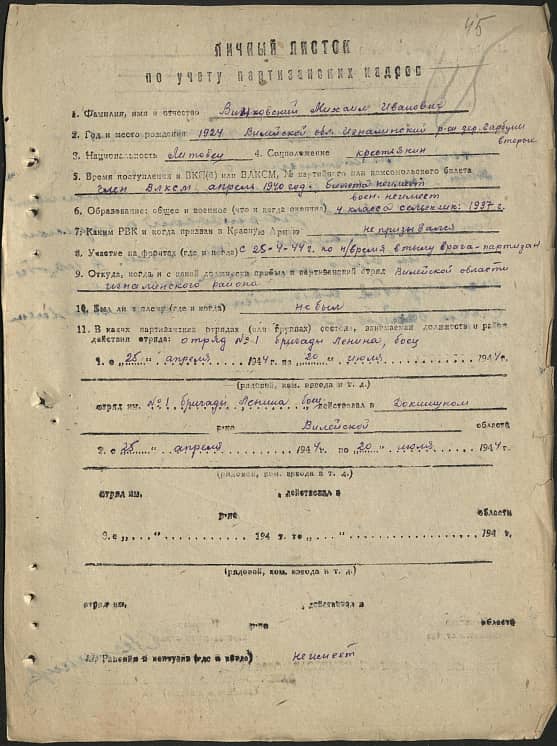 45
ЛИЧНЫЙ ЛИСТОК
по учету партизанских кадров
1. Фамилия, имя и отчество Михаил Иванович
2. Год и место рождения 1924 Вилейской обл. Игналинский р-он дер.
3. Национальность Литовец 4. Соцположение крестьянин
5. Время поступления в ВКП(б) или ВЛКСМ, № партийного или комсомольского билета
член ВЛКСМ апрель 1940 год. билета неимеет
воен. неимеет
6. Образование: общее и военное (что и когда окончил) 4 класса 1937 г.
7. Каким РВК и когда призван в Красную Армию не призывался
8. Участие на фронтах (где и когда) с 25-4-44 г. по н/время в тылу врага - партизан
9. Откуда, когда и с какой должности прибыл в партизанский отряд Вилейской области
игналинского района
10. Был ли в плену (где и когда) не был
11. В каких партизанских отрядах (или группах) состоял, занимаемая должность и район
действия отряда: отряд №1 бригады Ленина, боец
1. с „25“ апреля 1944 г. по „20“ июля 1944 г.
(рядовой, ком. взвода и т. д.)
отряд им. №1 бригады Ленина боец действовал в Докшицком
р-не Вилейской области
2. с „25“ апреля 1944 г. по „20“ июля 1944 г.
(рядовой, ком. взвода и т. д.)
отряд им. , действовал в
р-не области
3. с „....“ 194 г. по „....“ 194 г.
(рядовой, ком. взвода и т. д.)
отряд им. , действовал в
р-не области
12. Ранения и контузии (где и когда) неимеет